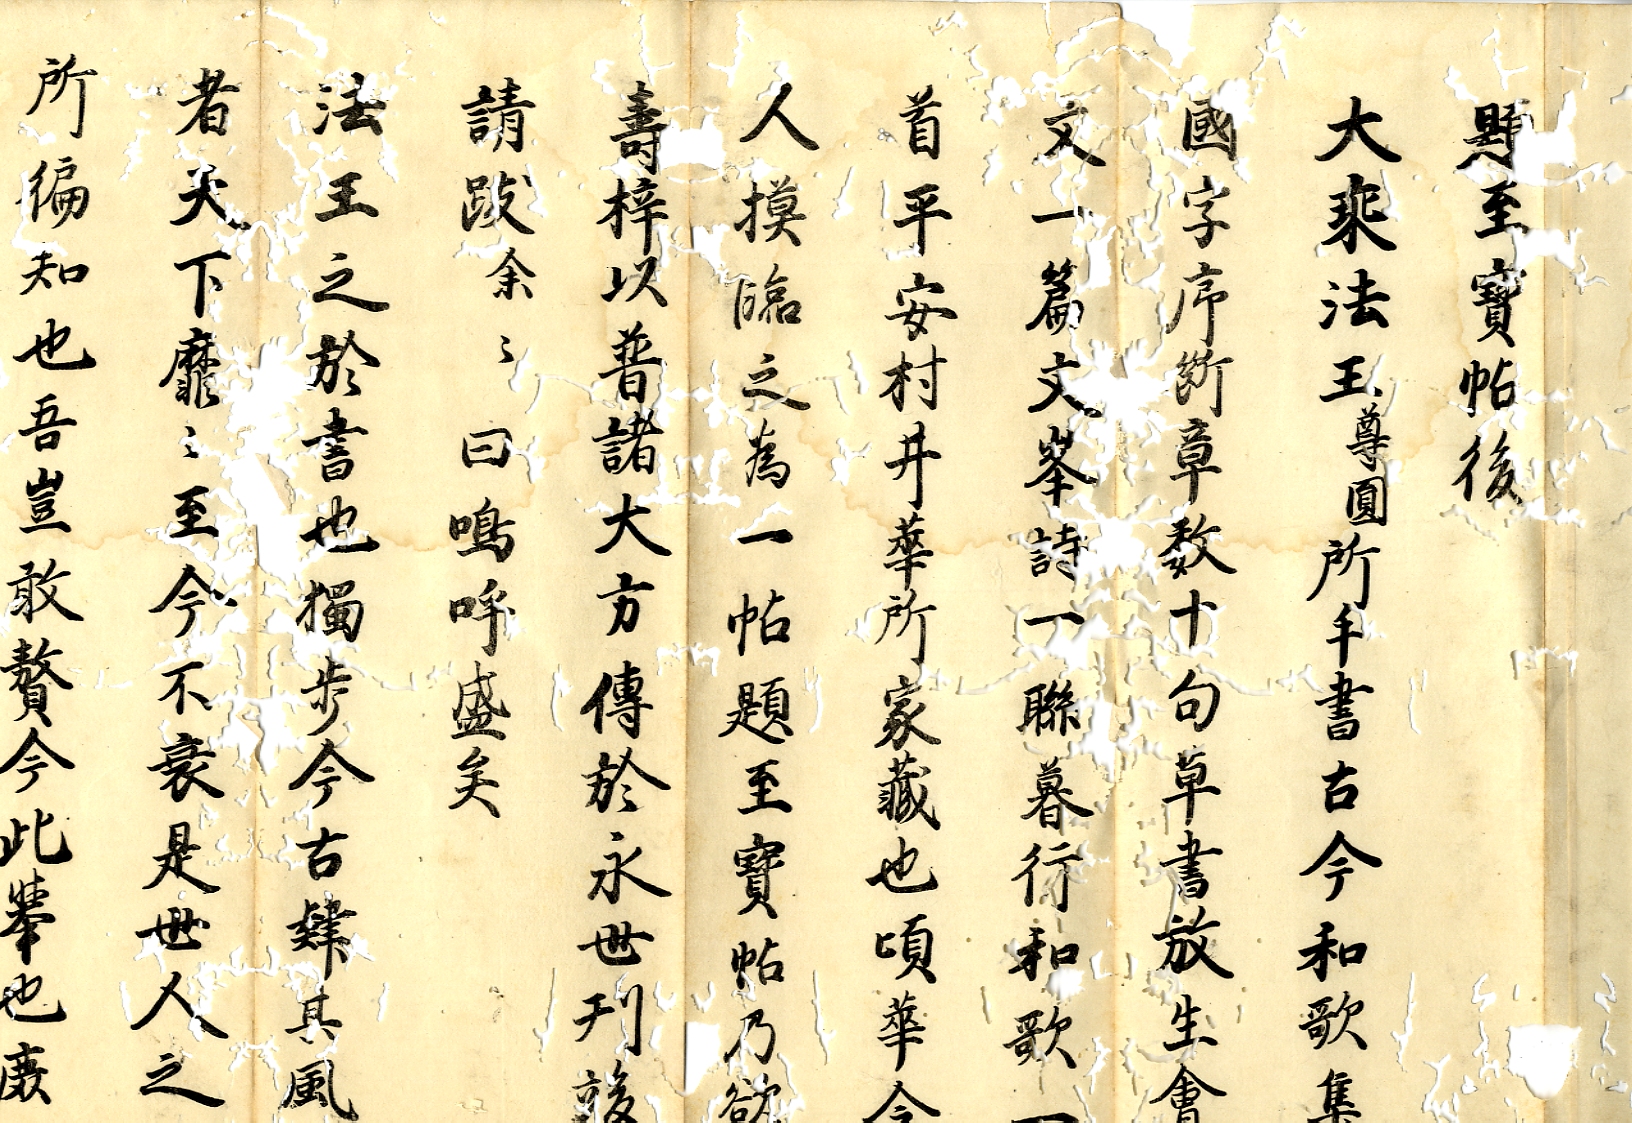 題至寶帖後
大乘法王尊圓所手書古今和歌集
國字序斷章数十句草書放生會
文一篇文峯詩一聯暮行和歌一
首平安村井華所家藏也頃華令
人摸臨之為一帖題至寶帖乃欲
壽梓以普諸大方傳於永世刊竣
請跋余〻曰鳴呼盛矣
法王之於書也獨步今古肆其風
者天下靡〻至今不衰是世人之
所徧知也吾豈敢贅今此擧也